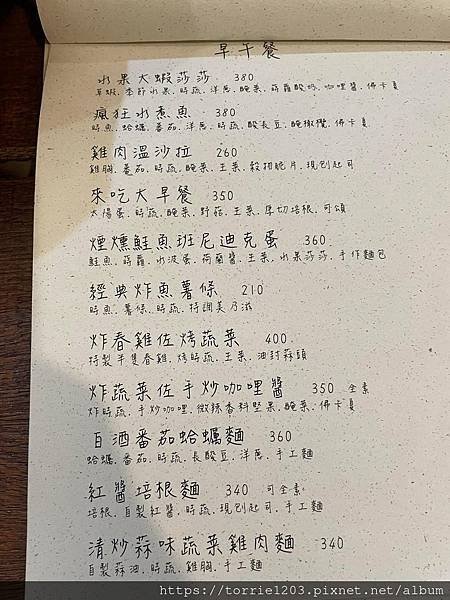 早午餐
水果大蝦莎莎 380
草蝦.季節水果.時蔬.洋蔥.醃菜.蒔蘿酸奶.咖哩醬.佛卡夏
瘋狂水煮魚 380
時魚.蛤蠣.番茄.洋蔥.時蔬.酸長豆.醃橄欖.佛卡夏
雞肉溫沙拉 260
雞胸.番茄.時蔬.醃菜.生菜.穀物脆片.現刨起司
來吃大早餐 350
太陽蛋.時蔬.醃菜.野菇.生菜.厚切培根.可頌
煙燻鮭魚班尼迪克蛋 360
鮭魚.蒔蘿.水波蛋.荷蘭醬.生菜.水果莎莎.手作麵包
經典炸魚薯條 210
時魚.薯條.時蔬.特調美乃滋
炸春雞佐烤蔬菜 400
特製半隻春雞.烤時蔬.生菜.油封蒜頭
炸蔬菜佐手炒咖哩醬 350 全素
炸時蔬.手炒咖哩.微辣香料堅果.醃菜.佛卡夏
白酒番茄蛤蠣麵 360
蛤蠣.番茄.時蔬.長酸豆.洋蔥.手工麵
紅醬培根麵 340 可全素
培根.自製紅醬.時蔬.現刨起司.手工麵
清炒蒜味蔬菜雞肉麵 340
自製蒜油.時蔬.雞胸.手工麵
https://torrie1203.pixnet.net/album